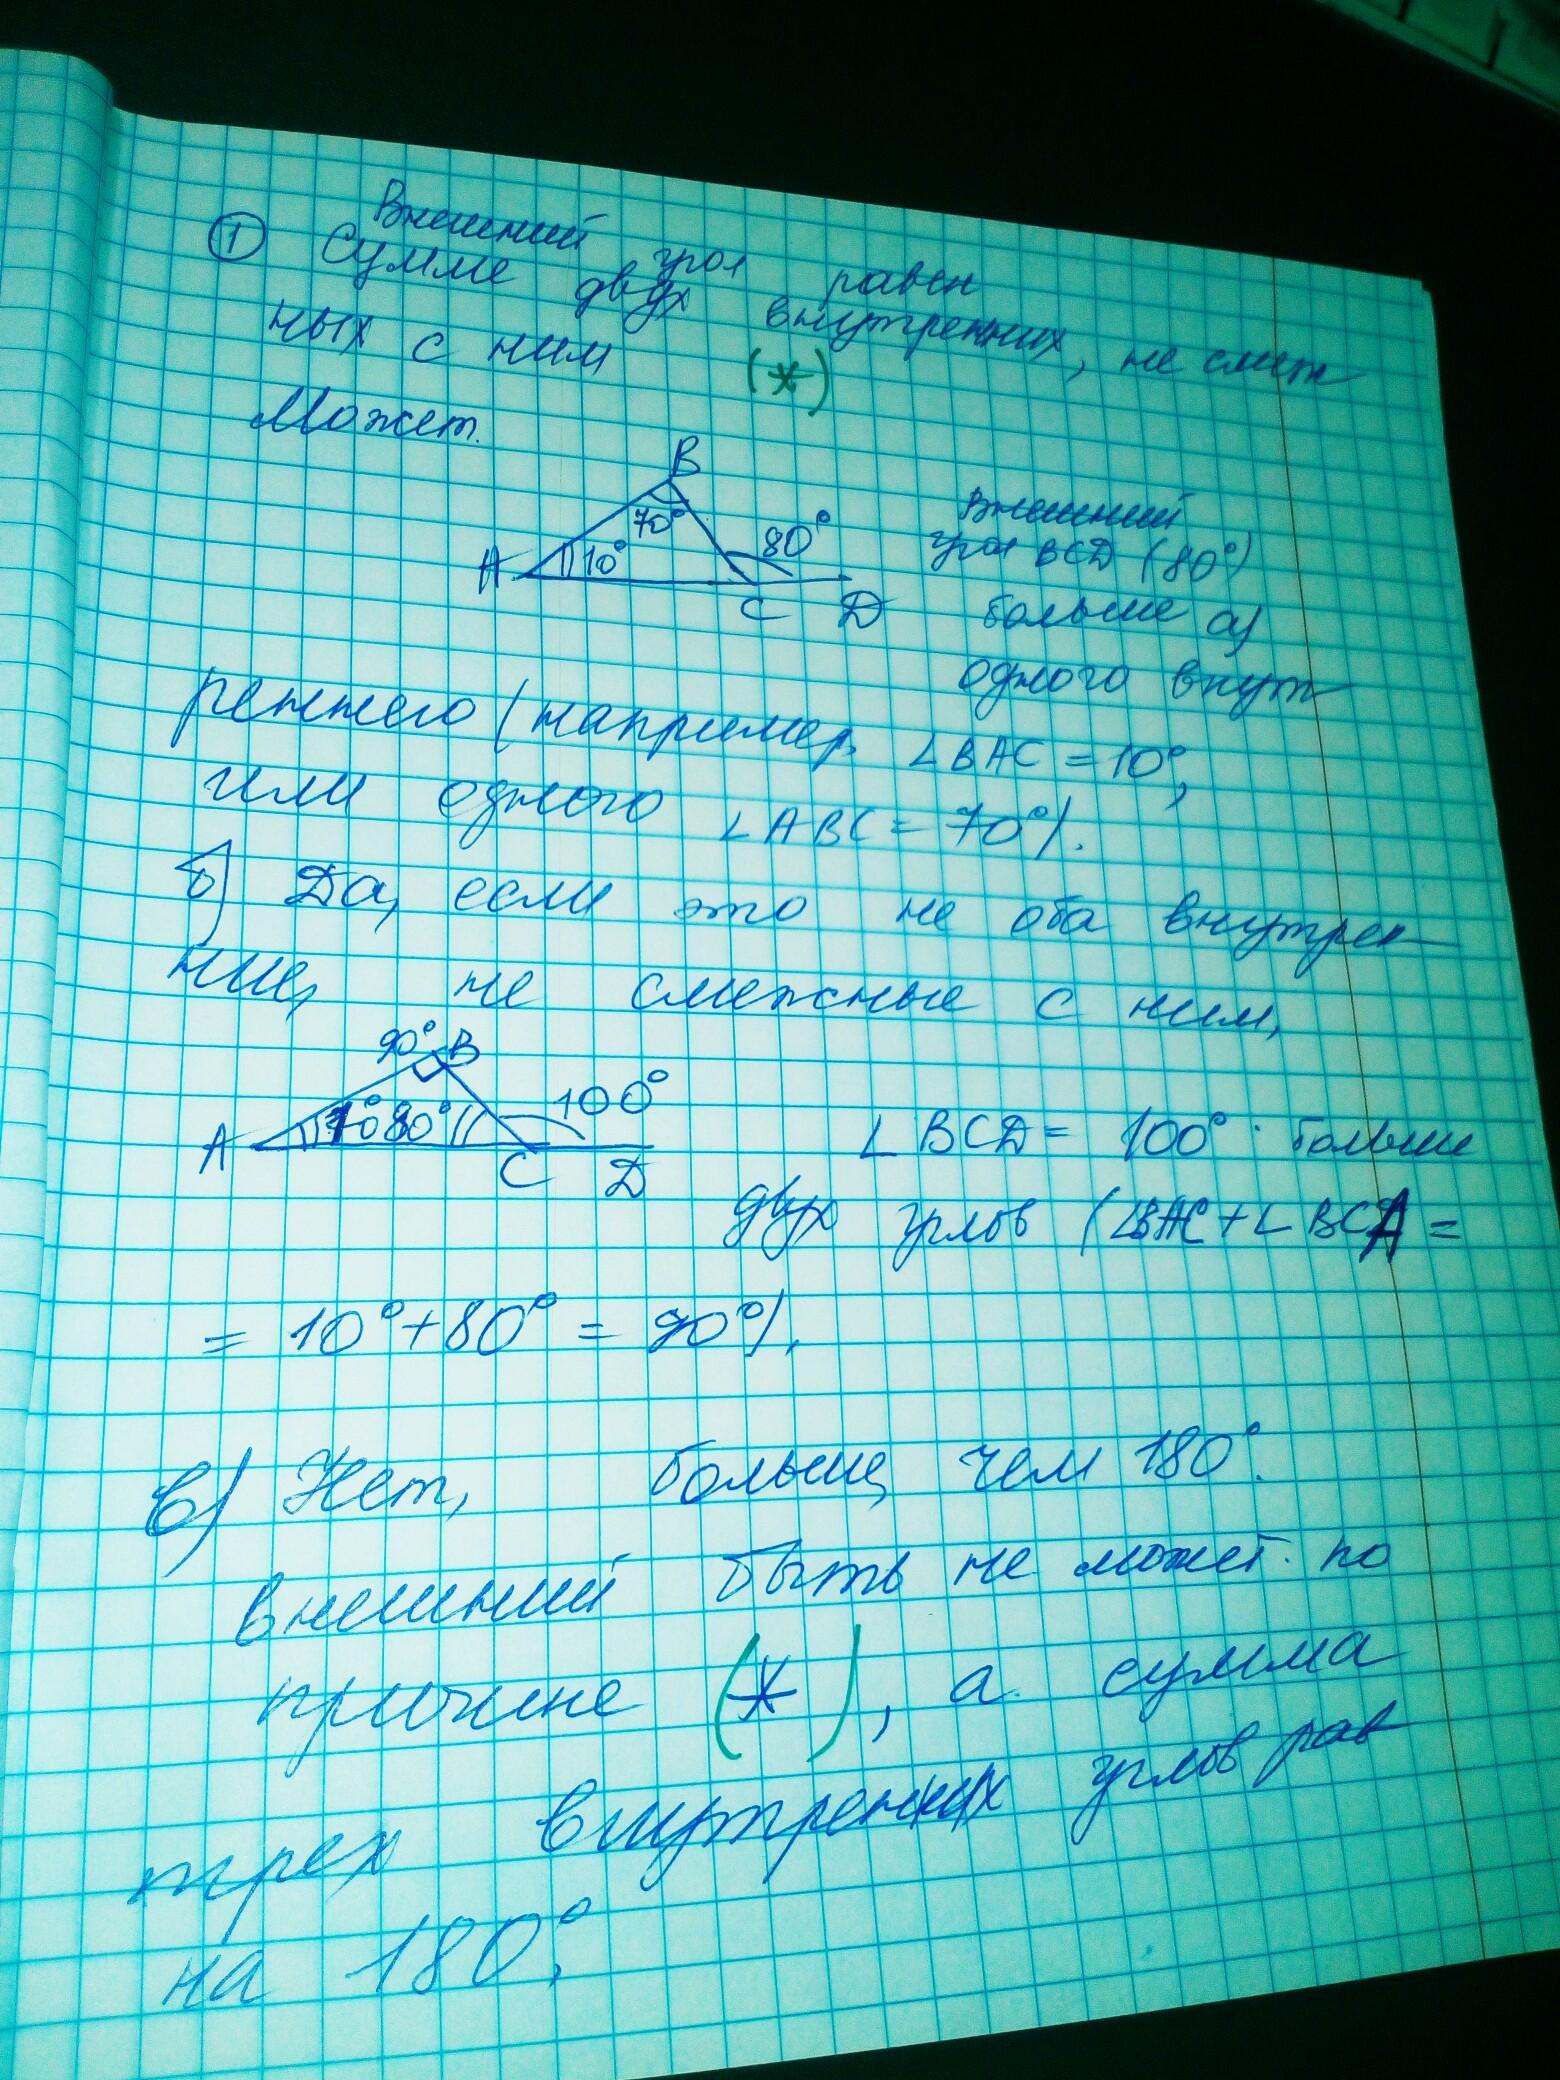 ① Внешний угол равен
сумме двух внутренних, не смеж
ных с ним (*)
Может.
B
70°
80°
A 10°
C D
Внешний
угол BCD (80°)
больше а)
одного внут
реннего (например ∠BAC = 10°,
или одного ∠ABC = 70°).
б) Да, если это не оба внутрен
ние, не смежные с ним,
90° B
100°
A 10° 80°
C D
∠BCD = 100° больше
двух углов (∠BAC + ∠BCA =
= 10° + 80° = 90°).
в) Нет, больше, чем 180°.
внешний быть не может по
причине (*), а сумма
трех внутренних углов рав
на 180°.